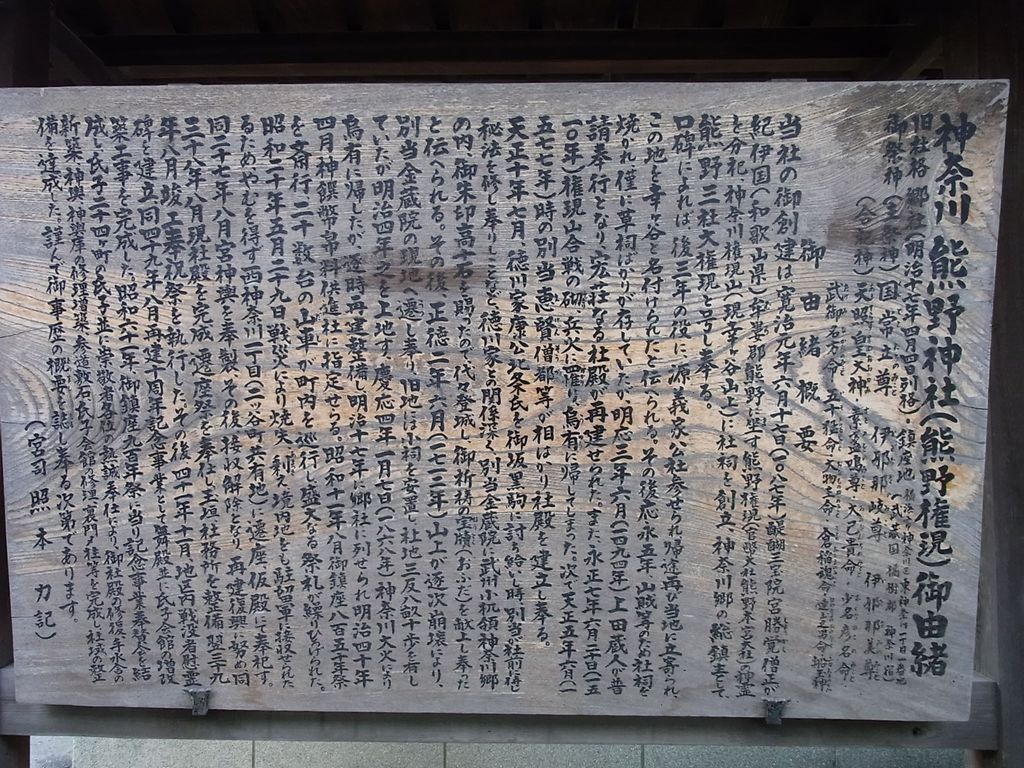 神奈川熊野神社(熊野権現)御由緒
旧社格 郷社(明治十七年四月四日列格)
御祭神(主祭神)国常立尊 伊邪那岐尊 伊邪那美尊
御由緒概要
当社の御創建は寛治元年六月十七日(一〇八七年)醍醐三宝院宮勝覚僧正が
紀伊国(和歌山県)牟婁郡熊野に坐す熊野権現
を分祀 神奈川権現山(現幸ヶ谷山上)に社祠を創立、神奈川郷の総鎮守として
熊野三社大権現と号し奉る。
口碑によれば、後三年の役に源義家公社参せられ帰途再び当地に立寄られ、
この地を幸ヶ谷と名付けられたと伝へられる。その後応永五年、山賊等のため社祠を
焼かれ僅に草祠ばかりが存していたが明応三年六月(一四九四年)上田蔵人が普
請奉行となり、宏荘なる社殿が再建せられた。また、永正七年六月二十日(一五
一〇年)権現山合戦の砌、兵火に罹り烏有に帰してしまった。次で天正五年六月(一
五七七年)時の別当恵賢僧都等が相はかり社殿を建立し奉る。
天正十年七月、徳川家康公北条氏を御坂黒駒に討ち給いし時別当社前に得
秘法を修し奉りしことなど、徳川家との関係深く、別当金蔵院に武州小机領神奈川郷
の内御朱印高十石を賜ったので代々登城し、御祈祷の宝牘(おふだ)を献上し奉った
と伝へられる。その後、正徳二年六月(一七一二年)山上が逐次崩壊により、
別当金蔵院の現地へ遷し奉り、旧地には小祠を安置し、社地三反八畝十歩を有し
ていたが明治四年之を上地す。慶応四年一月七日(一八六八年)神奈川大火により
烏有に帰したが、逐時再建整備し明治十七年に郷社に列せられ明治四十年
四月神饌幣帛料供進社に指定せらる。昭和十一年八月御鎮座八百五十年祭
を斎行、二十数台の山車が町内を巡行し盛大なる祭礼が繰りひろげられた。
昭和二十年五月二十九日戦災により焼失、剰え境内地も駐留軍に接収せられた
るためやむを得ず西神奈川一丁目(二ッ谷町共有地)に遷座、仮殿にて奉祀す。
同二十七年八月宮神輿を奉製、その後接収解除となり、再建復興に努め同
三十八年八月現社殿を完成、遷座祭を奉仕し玉垣社務所を整備、翌三十九
年八月竣工奉祝祭を執行した。その後四十一年十一月、境内に戦没者慰霊
碑を建立、同四十九年八月再建十周年記念事業として舞殿並に氏子会館の増改
築工事を完成した。昭和六十一年、御鎮座九百年祭に当り記念事業奉賛会を結
成し氏子二十四ヶ町の氏子並に崇敬者各位の熱誠奉仕により、御社殿の修復、手水舎の
新築、神輿、神輿庫の修理造築、参道敷石、氏子会館修理、裏門々柱等を完成、社域の整
備を達成した。謹んで御事歴の概要を誌し奉る次第であります。
(宮司 照本 力 記)